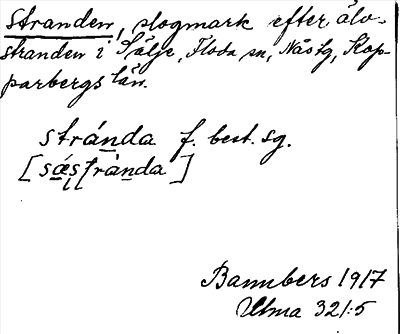 Stranden, slogmark efter älv-
stranden i Sälje, Floda sn, Nås tg, Kop-
parbergs län.
stránda f. best. sg.
[sǽsʃrànda]
Bannbers 1917
Ulma 321:5